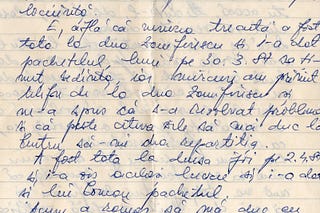 locuință
E, află că vinerea trecută a fost
tata la dna Zamfirescu și i-a dat
pachetul, luni pe 30.3.87 sa ți-
nut ședința, iar miercuri am primit
telefon de la dna Zamfirescu și
m-a spus că s-a rezolvat problema
și că peste câteva zile să mă duc la
Centru, să-mi dea repartiția.
A fost tata la Luisa joi pe 2.4.
și i-a dis același lucru și i-a dat
și lui Coman pachetul.
să mă duc cu